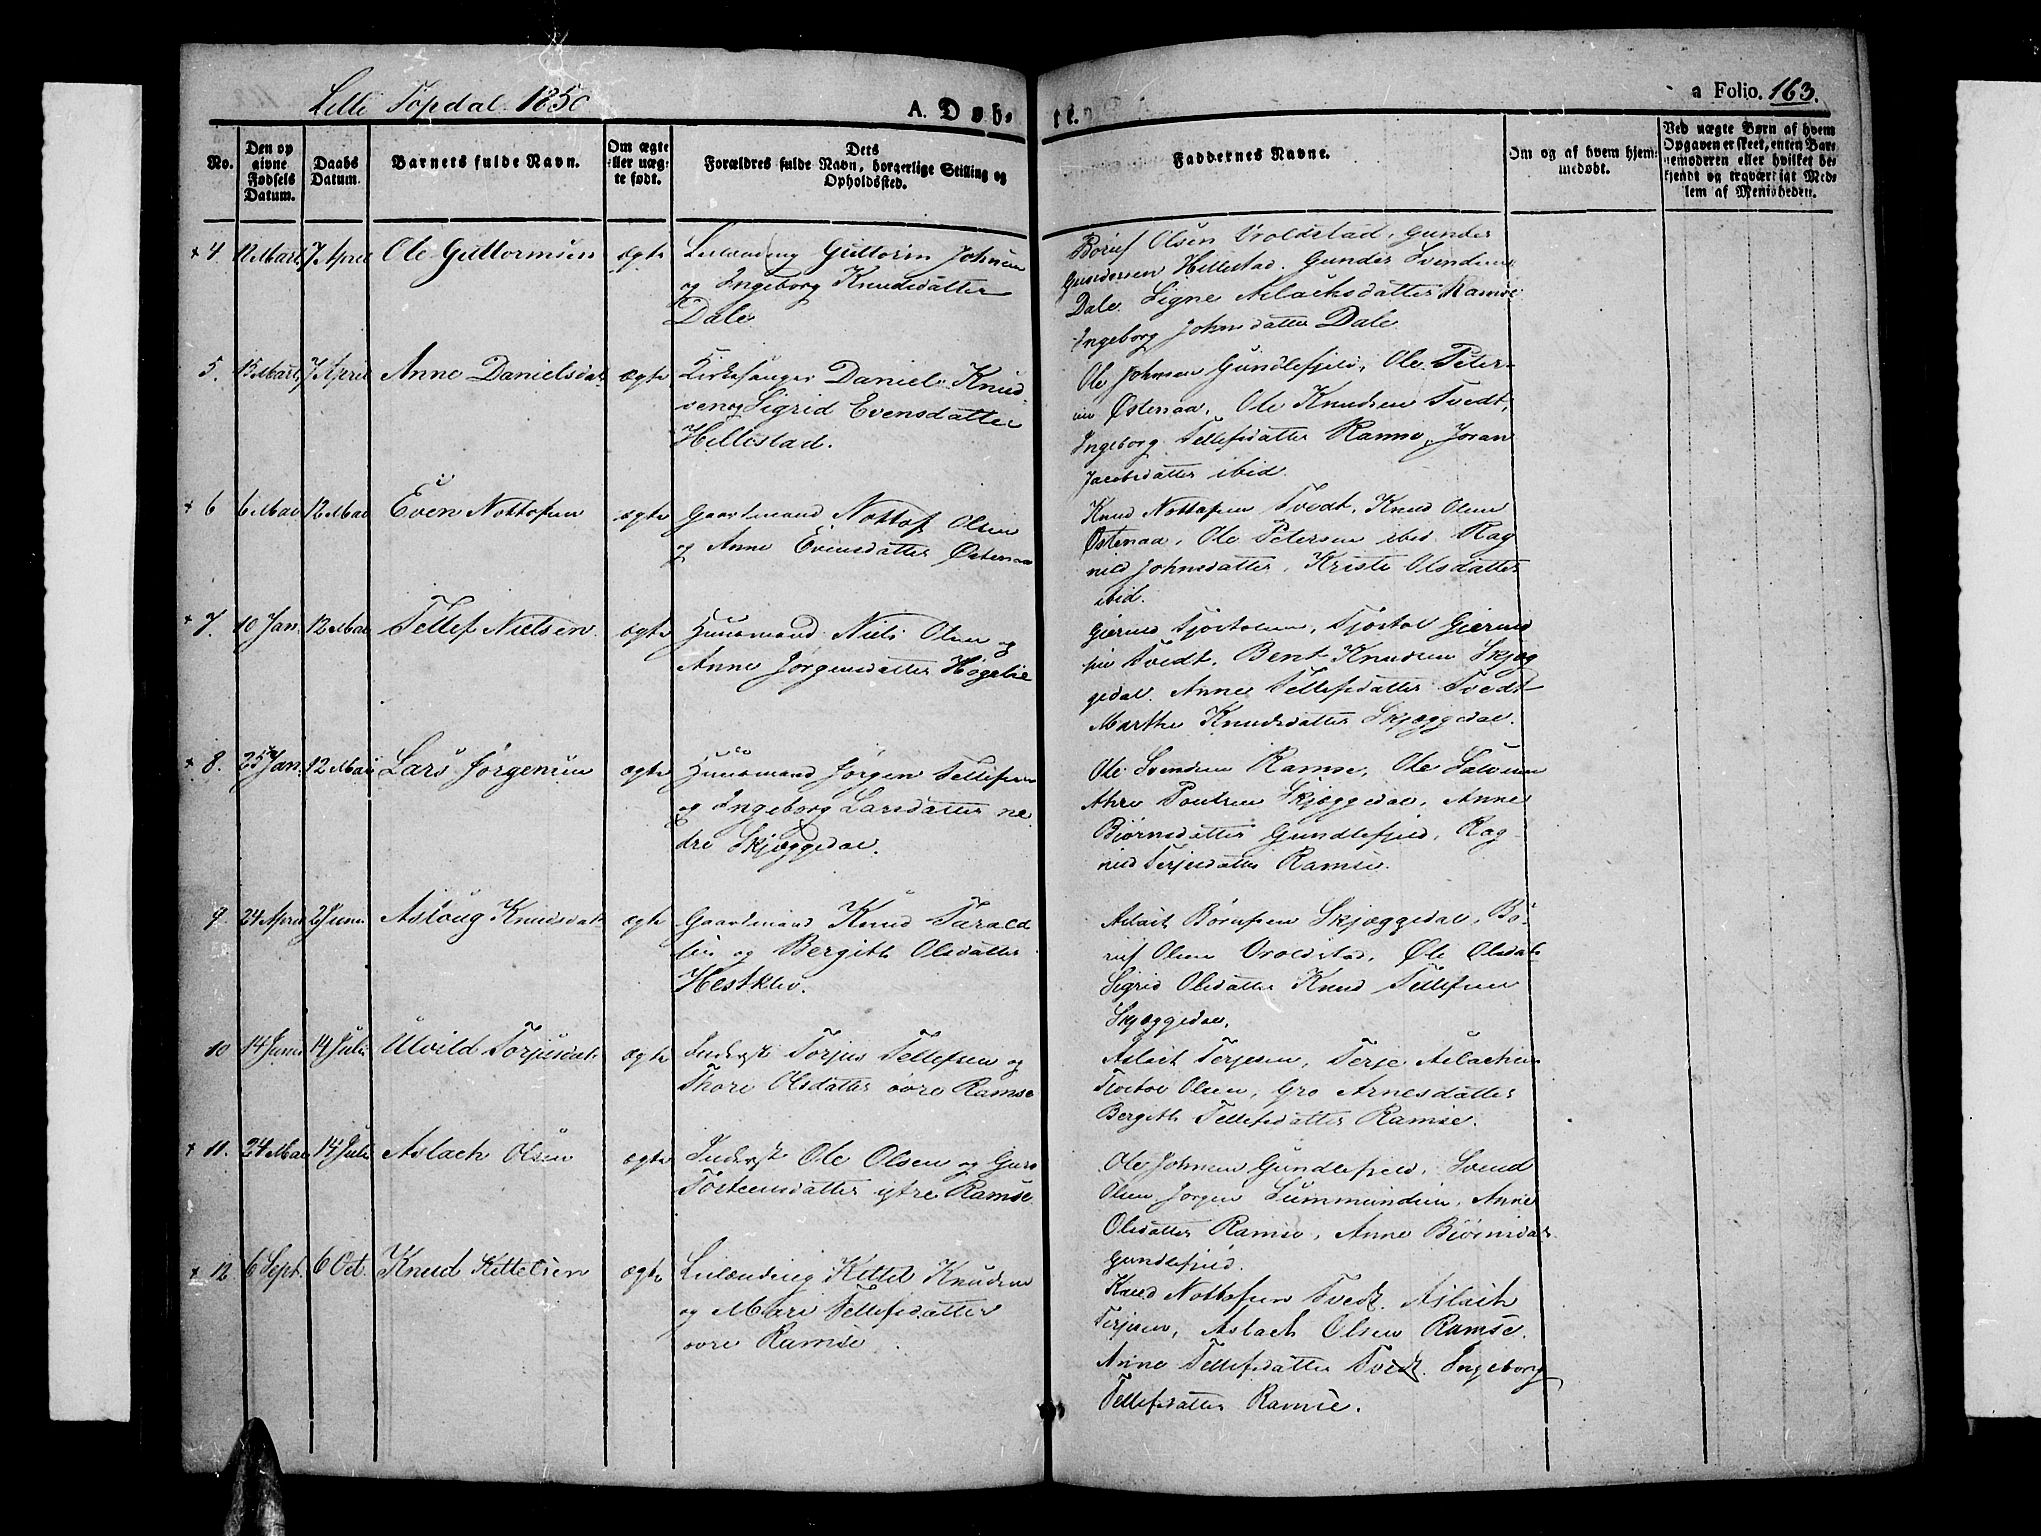 Lille Topdal 1850
A. Døb-
te.
a Folio. 163.
No.
Den op
givne
Fødsels
Datum.
Daabs
Datum.
Barnets fulde Navn.
Om ægte
eller uæg-
te født.
Dets
Forældres fulde Navn, borgerlige Stilling og
Opholdssted.
Faddernes Navne.
Om og af hvem hjem-
medøbt.
Ved uægte Børn af hvem
Opgaven er skeet, enten Bar-
nemoderen eller hvilket be-
kjendt og troværdigt Med-
lem af Menigheden.
+ 4 12 Marts 7 April Ole Guttormsen ægte Leilænding Guttorm Johnsen
og Ingeborg Knudsdatter
Dale
Børuf Olsen Vroldstad, Gunder
Gundersen Hillestad. Gunder Svendsen
Dale. Signe Aslachsdatter Ramse
Ingeborg Johnsdatter Dale
5. 15 Marts 7 April Anne Danielsdat. ægte Kirkesanger Daniel Knud
sen og Sigrid Evensdatter
Hillestad.
Ole Johnsen Gundlefjeld, Ole Peter-
sen Østenaa, Ole Knudsen Tvedt,
Ingeborg Tellefsdatter Ramse, Joran
Jacobsdatter ibid.
+ 6 6 Mai 12 Mai Even Nottofsen ægte Gaardmand Nottof Olsen
og Anne Evensdatter Østenaa
Knud Nottofsen Tvedt, Knud Olsen
Østenaa, Ole Petersen ibid Rag
nild Johnsdatter, Kristi Olsdatter
ibid.
+ 7. 10 Jan. 12 Mai Tellef Nielsen. ægte Huusmand Niels Olsen og
Anne Jørgensdatter Høgelie
Gierund Tjøstolsen, Tjøstol Gierund
sen Tvedt. Bent Knudsen Skjæg
gedal. Anne Tellefsdatter Tvedt
Marthe Knudsdatter Skjæggedal.
+ 8. 25 Jan. 12 Mai Lars Jørgensen ægte Huusmand Jørgen Tellefsen
og Ingeborg Larsdatter ne
dre Skjæggedal.
Ole Svendsen Ramse, Ole Salvesen
Poulsen Skjæggedal, Anne
Bjørnsdatter Gundlefjeld, Rag
nild Terjesdatter Ramse.
9. 24 April 2 Juni Aslaug Knudsdat. ægte Gaardmand Knud Tarald
sen og Bergith Olsdatter
Hestklev.
Aslach Børufsen Skjæggedal, Bø-
ruf Olsen Vroldstad, Ole Olsdal
Sigrid Olsdatter Knud Tellefsen
Skjæggedal.
10 14 Juni 14 Juli Ulvild Torjusdat. ægte Inderst Torjus Tellefsen og
Thore Olsdatter øvre Ramse
Aslach Terjesen, Terje Aslachsen
Tjøstol Olsen, Gro Arnesdatter
Bergith Tellefsdatter Ramse.
+ 11. 24 Mai 14 Juli Aslach Olsen ægte Inderst Ole Olsen og Guro
Tosteensdatter ytre Ramse
Ole Johnsen Gundlefjeld, Svend
Olsen Jørgen Summundsen, Anne
Olsdatter Ramse, Anne Bjørnsdat.
Gundlefjeld.
+ 12 6 Sept. 6 Oct. Knud Kittelsen ægte Leilænding Kittel Knudsen
og Mari Tellefsdatter
øvre Ramse.
Knud Nottofsen Tvedt. Aslach
Terjesen, Aslach Olsen Ramse.
Anne Tellefsdatter Tvedt. Ingeborg
Tellefsdatter Ramse.